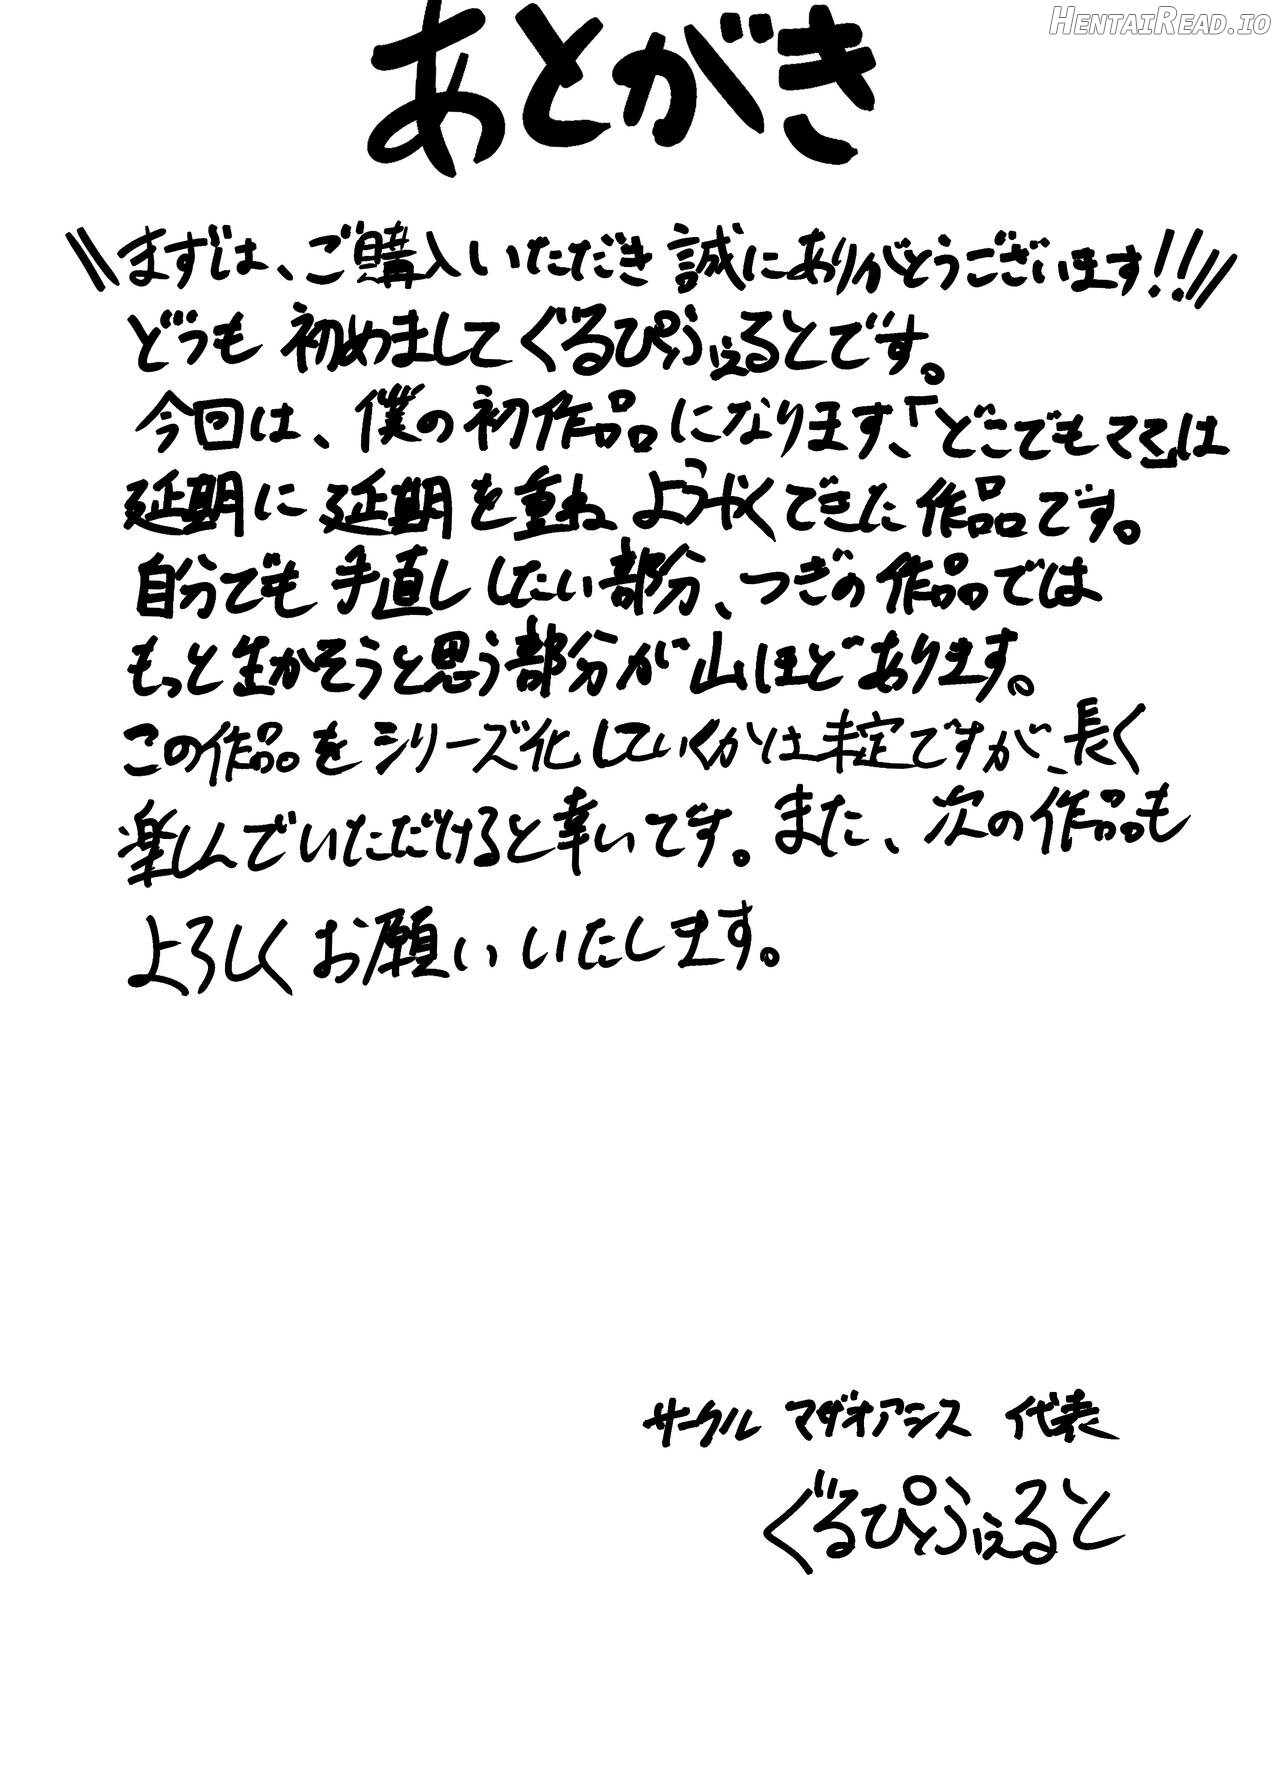 HENTAIREAD.IO
あとがき
\\まずは、ご購入いただき誠にありがとうございます!!//
どうも初めましてぐるぴぃふぇるとです。
今回は、僕の初作品になります、「どこでもママ」は
延期に延期を重ねようやくできた作品です。
自分でも手直ししたい部分、つぎの作品では
もっと生かそうと思う部分が山ほどあります。
この作品をシリーズ化していくかは未定ですが、長く
楽しんでいただけると幸いです。また、次の作品も
よろしくお願いいたします。
サークル マザオアシス 代表
ぐるぴぃふぇると